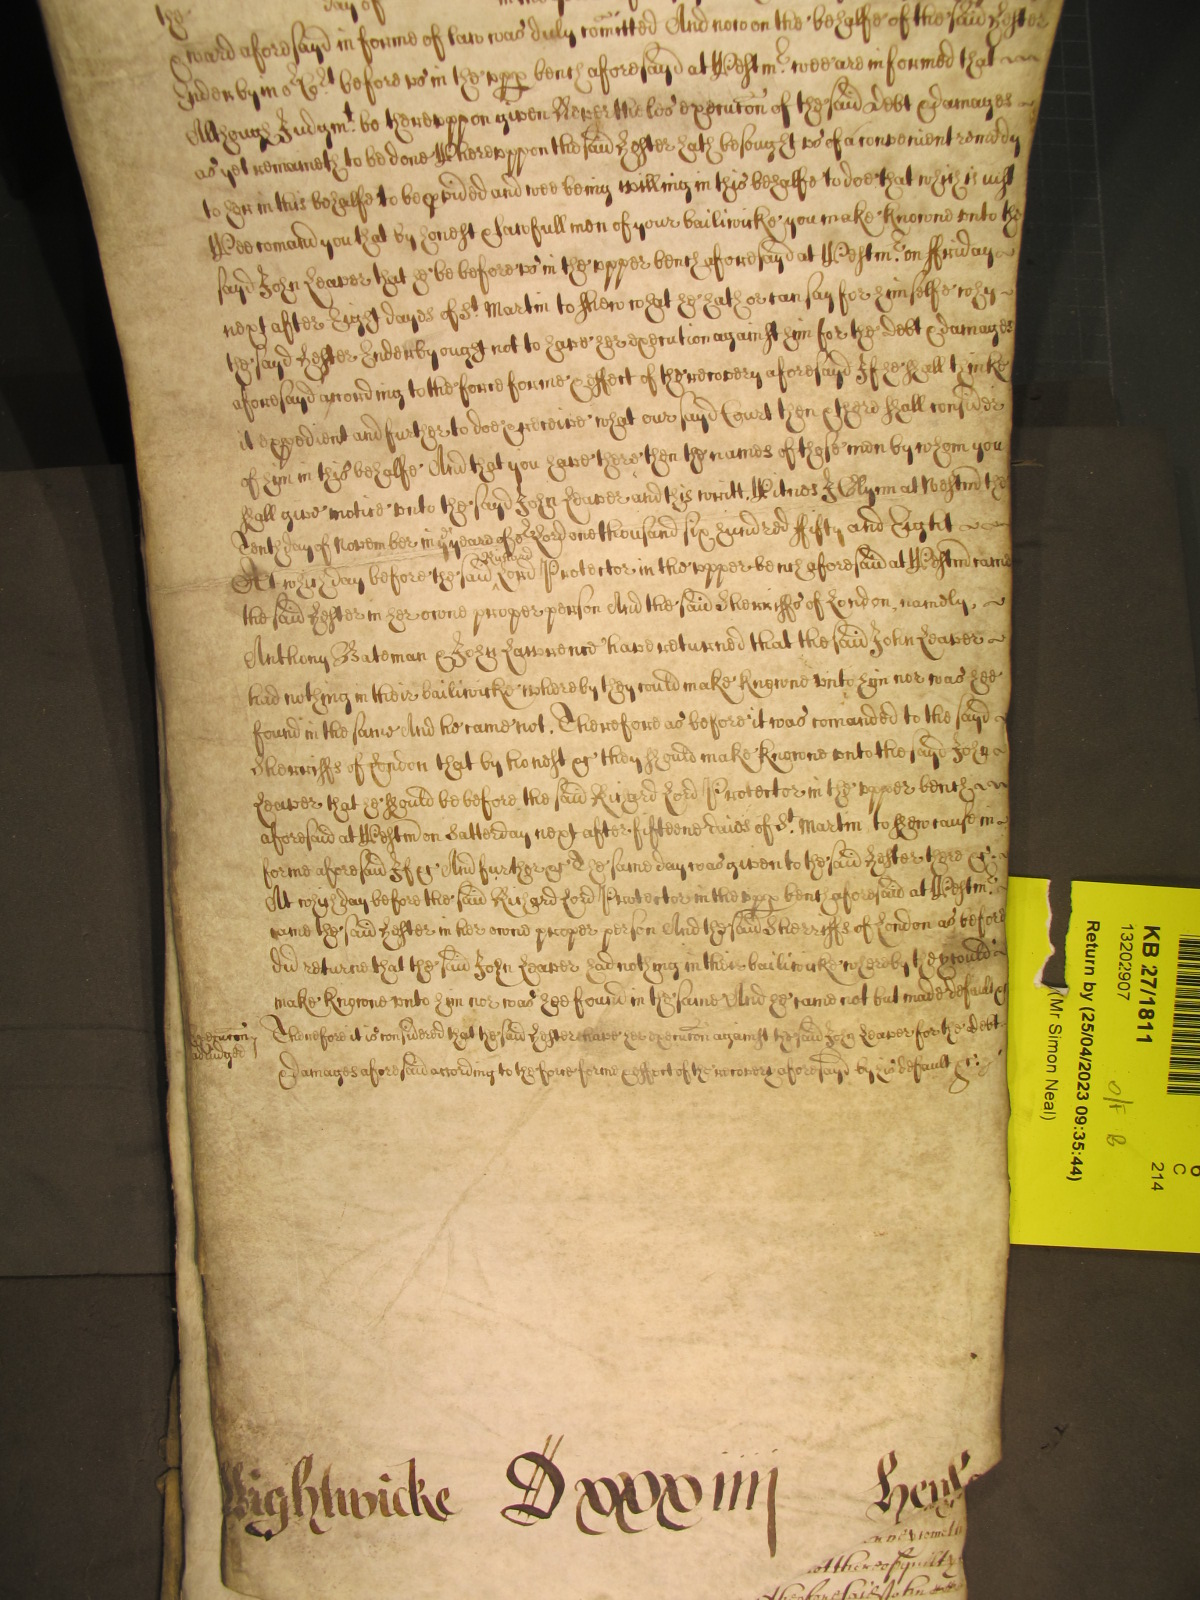 the day of in the
Ward aforesayd in forme of law was duly comitted And now on the behalfe of the said Hester
Enderby in or Cort before us in the upp bench aforesayd at Westmr wee are informed that
Although Judgmt be thereuppon given Neverthelos execucon of the said Debt & damages
as yet remaineth to be done Whereuppon the said Hester hath besought us of a convenient remedy
to her in this behalfe to be pvided and wee being willing in this behalfe to doe that which is just
Wee comand you that by honest & lawfull men of your bailiwicke you make knowne unto the
sayd John Leaver that he be before us in the upper bench aforesayd at Westmr on ffriday
next after Eight dayes of St Martin to shew what he hath or can say for himselfe why
the sayd Hester Enderby ought not to have her execution against him for the Debt & damages
aforesayd according to the force forme & effect of the recovery aforesayd If he shall thinke
it expedient and further to doe & receive what our sayd Court then & there shall consider
of him in this behalfe And that you have there then the names of those men by whom you
shall give notice unto the sayd John Leaver and this writt. Witnes J Glynn at Westmr the
Tenth day of November in ye yeare of or Lord one thousand six hundred ffifty and Eight
At which day before the said Richard Lord Protector in the upper bench aforesaid at Westmr came
the said Hester in her owne proper person And the said Sherriffs of London, namely,
Anthony Bateman & John Lawrence have returned that the said John Leaver
had nothing in their bailiwicke whereby they could make knowne unto him nor was hee
found in the same And he came not. Therefore as before it was comanded to the sayd
Sherriffs of London that by honest &c they should make knowne unto the said John
Leaver that he should be before the said Richard Lord Protector in the upper bench
aforesaid at Westmr on Satterday next after fifteene daies of St Martin to shew cause in
forme aforesaid If &c And further &c The same day was given to the said Hester there &c
At which day before the said Richard Lord Protector in the upp bench aforesaid at Westmr
came the said Hester in her owne proper person And the said Sherriffs of London as before
did returne that the said John Leaver had nothing in their bailiwicke whereby they could
make knowne unto him nor was hee found in the same And he came not but made default &c
execucon adiudged
Therefore it is considered that the said Hester have her execucon against the said John Leaver for the Debt
& damages aforesaid according to the force forme & effect of the recovery aforesayd by his default &c
Wightwicke Dxxxxiiij Henl
not thereof guilty
the aforesaid John
KB 27/1811
13202907
Return by (25/04/2023 09:35:44)
(Mr Simon Neal)
O/F B
6
C
214